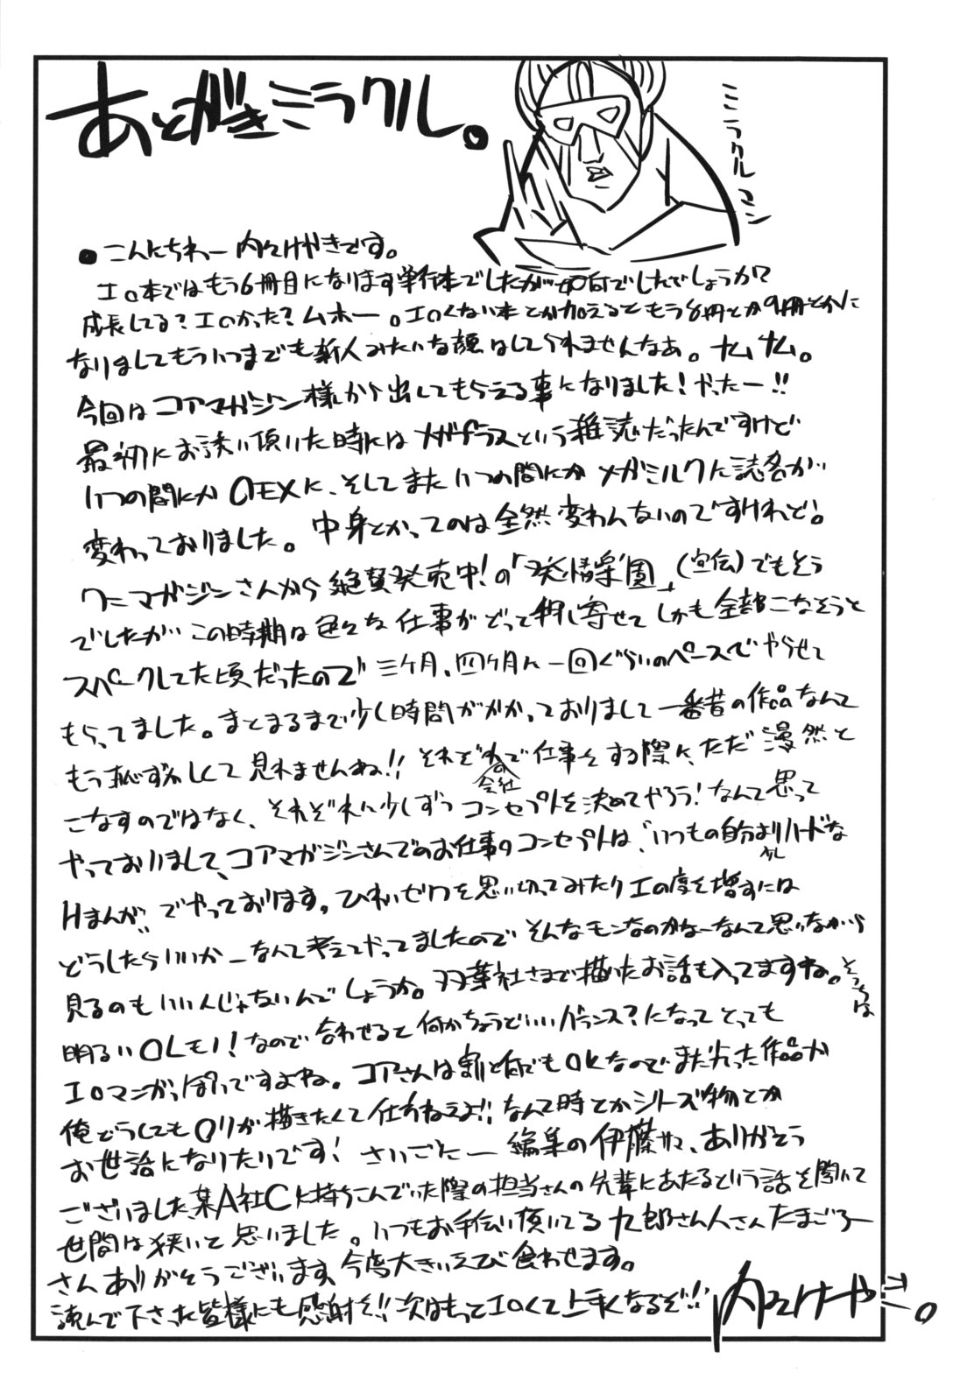 あとがきミラクル。
ミラクルマン
●こんにちわー 内々けやきです。
エロ本ではもう6冊目になります単行本でしたが如何でしたでしょうか?
成長してる?エロかった?ムホー。エロくない本とか加えるともう8冊とか9冊とかに
なりましてもういつまでも新人みたいな顔はしてられませんなぁ。ナムナム。
今回はコアマガジン様から出してもらえる事になりました!やったー!!
最初にお誘い頂いた時にはメガプラスという雑誌だったんですけど
いつの間にか0EXに、そしてまたいつの間にかメガミルクに誌名が
変わっておりました。中身とかってのは全然変わんないのですけれど。
ワニマガジンさんから絶賛発売中!の「発情楽園」(宣伝)でもそう
でしたがこの時期は色々な仕事がどって押し寄せてしかも全部こなそうと
スパークしてた頃だったので三ヶ月、四ヶ月に一回ぐらいのペースでやらせて
もらってました。まとまるまで少し時間がかかっておりまして一番昔の作品なんて
もう恥ずかしくて見れませんね!!それぞれの会社で仕事をする際に、ただ漫然と
こなすのではなく、それぞれに少しずつコンセプトを決めてやろう!なんて思って
やっておりまして、コアマガジンさんでのお仕事のコンセプトは、"いつもの自分より少しハードな
Hまんが"でやっております。ひわいゼリフを思い切ってみたりエロ度を増すには
どうしたらいいかーなんて考えてやってましたのでそんなモンなのかなーなんて思いながら
見るのもいいんじゃないんでしょうか。双葉社さまで描いたお話も入ってますね。そっちは
明るいOLモノ!なので合わせると何かちょうどいいバランス?になってとっても
エロマンガっぽいですよね。コアさんは割と何でもOKなのでまた尖った作品が
俺どうしてもロリが描きたくて仕方ねぇよ!!なんて時とかシリーズ物とか
お世話になりたいです!さいごにー編集の伊藤サマ、ありがとう
ございました、某A社Cに持ちこんでいた際の担当さんの先輩にあたるという話を聞いて
世間は狭いと思いました。いつもお手伝い頂いてる九郎さん人さんたまごろー
さんありがとうございます、今度大きいえび食わせます。
読んで下さった皆様にも感謝を!!次はもっとエロくて上手くなるぞ!!
内々けやき。